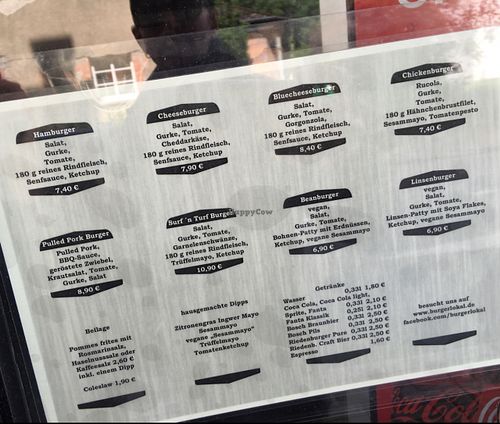 Hamburger
Salat,
Gurke,
Tomate,
180 g reines Rindfleisch,
Senfsauce, Ketchup
7,40 €
Cheeseburger
Salat,
Gurke, Tomate,
Cheddarkäse,
180 g reines Rindfleisch,
Senfsauce, Ketchup
7,90 €
Bluecheeseburger
Salat,
Gurke, Tomate,
Gorgonzola,
180 g reines Rindfleisch,
Senfsauce, Ketchup
8,40 €
Chickenburger
Rucola,
Gurke,
Tomate,
180 g Hähnchenbrustfilet,
Sesammayo, Tomatenpesto
7,40 €
Pulled Pork Burger
Pulled Pork,
BBQ-Sauce,
geröstete Zwiebel,
Krautsalat, Tomate,
Gurke, Salat
8,90 €
Surf´n Turf Burger
Salat,
Gurke, Tomate,
Garnelenschwänze,
180 g reines Rindfleisch,
Trüffelmayo, Ketchup
10,90 €
Beanburger
vegan,
Salat,
Gurke, Tomate,
Bohnen-Patty mit Erdnüssen,
Ketchup, vegane Sesammayo
6,90 €
Linsenburger
vegan,
Salat,
Gurke, Tomate,
Linsen-Patty mit Soya Flakes,
Ketchup, vegane Sesammayo
6,90 €
Beilage
Pommes frites mit
Rosmarinsalz,
Haselnusssalz oder
Kaffeesalz 2,60 €
inkl. einem Dipp
Coleslaw 1,90 €
hausgemachte Dipps
Zitronengras Ingwer Mayo
Sesammayo
vegane „Sesammayo“
Trüffelmayo
Tomatenketchup
Getränke
Wasser 0,33l 1,80 €
Coca Cola, Coca Cola light,
Sprite, Fanta 0,33l 2,10 €
Fanta Klassik 0,25l 2,10 €
Bosch Braunbier 0,33l 2,50 €
Bosch Pils 0,33l 2,50 €
Riedenburger Pure 0,33l 2,50 €
Riedenb. Craft Bier 0,33l 2,50 €
Espresso 1,60 €
besucht uns auf
www.burgerlokal.de
facebook.com/burgerlokal
HappyCow